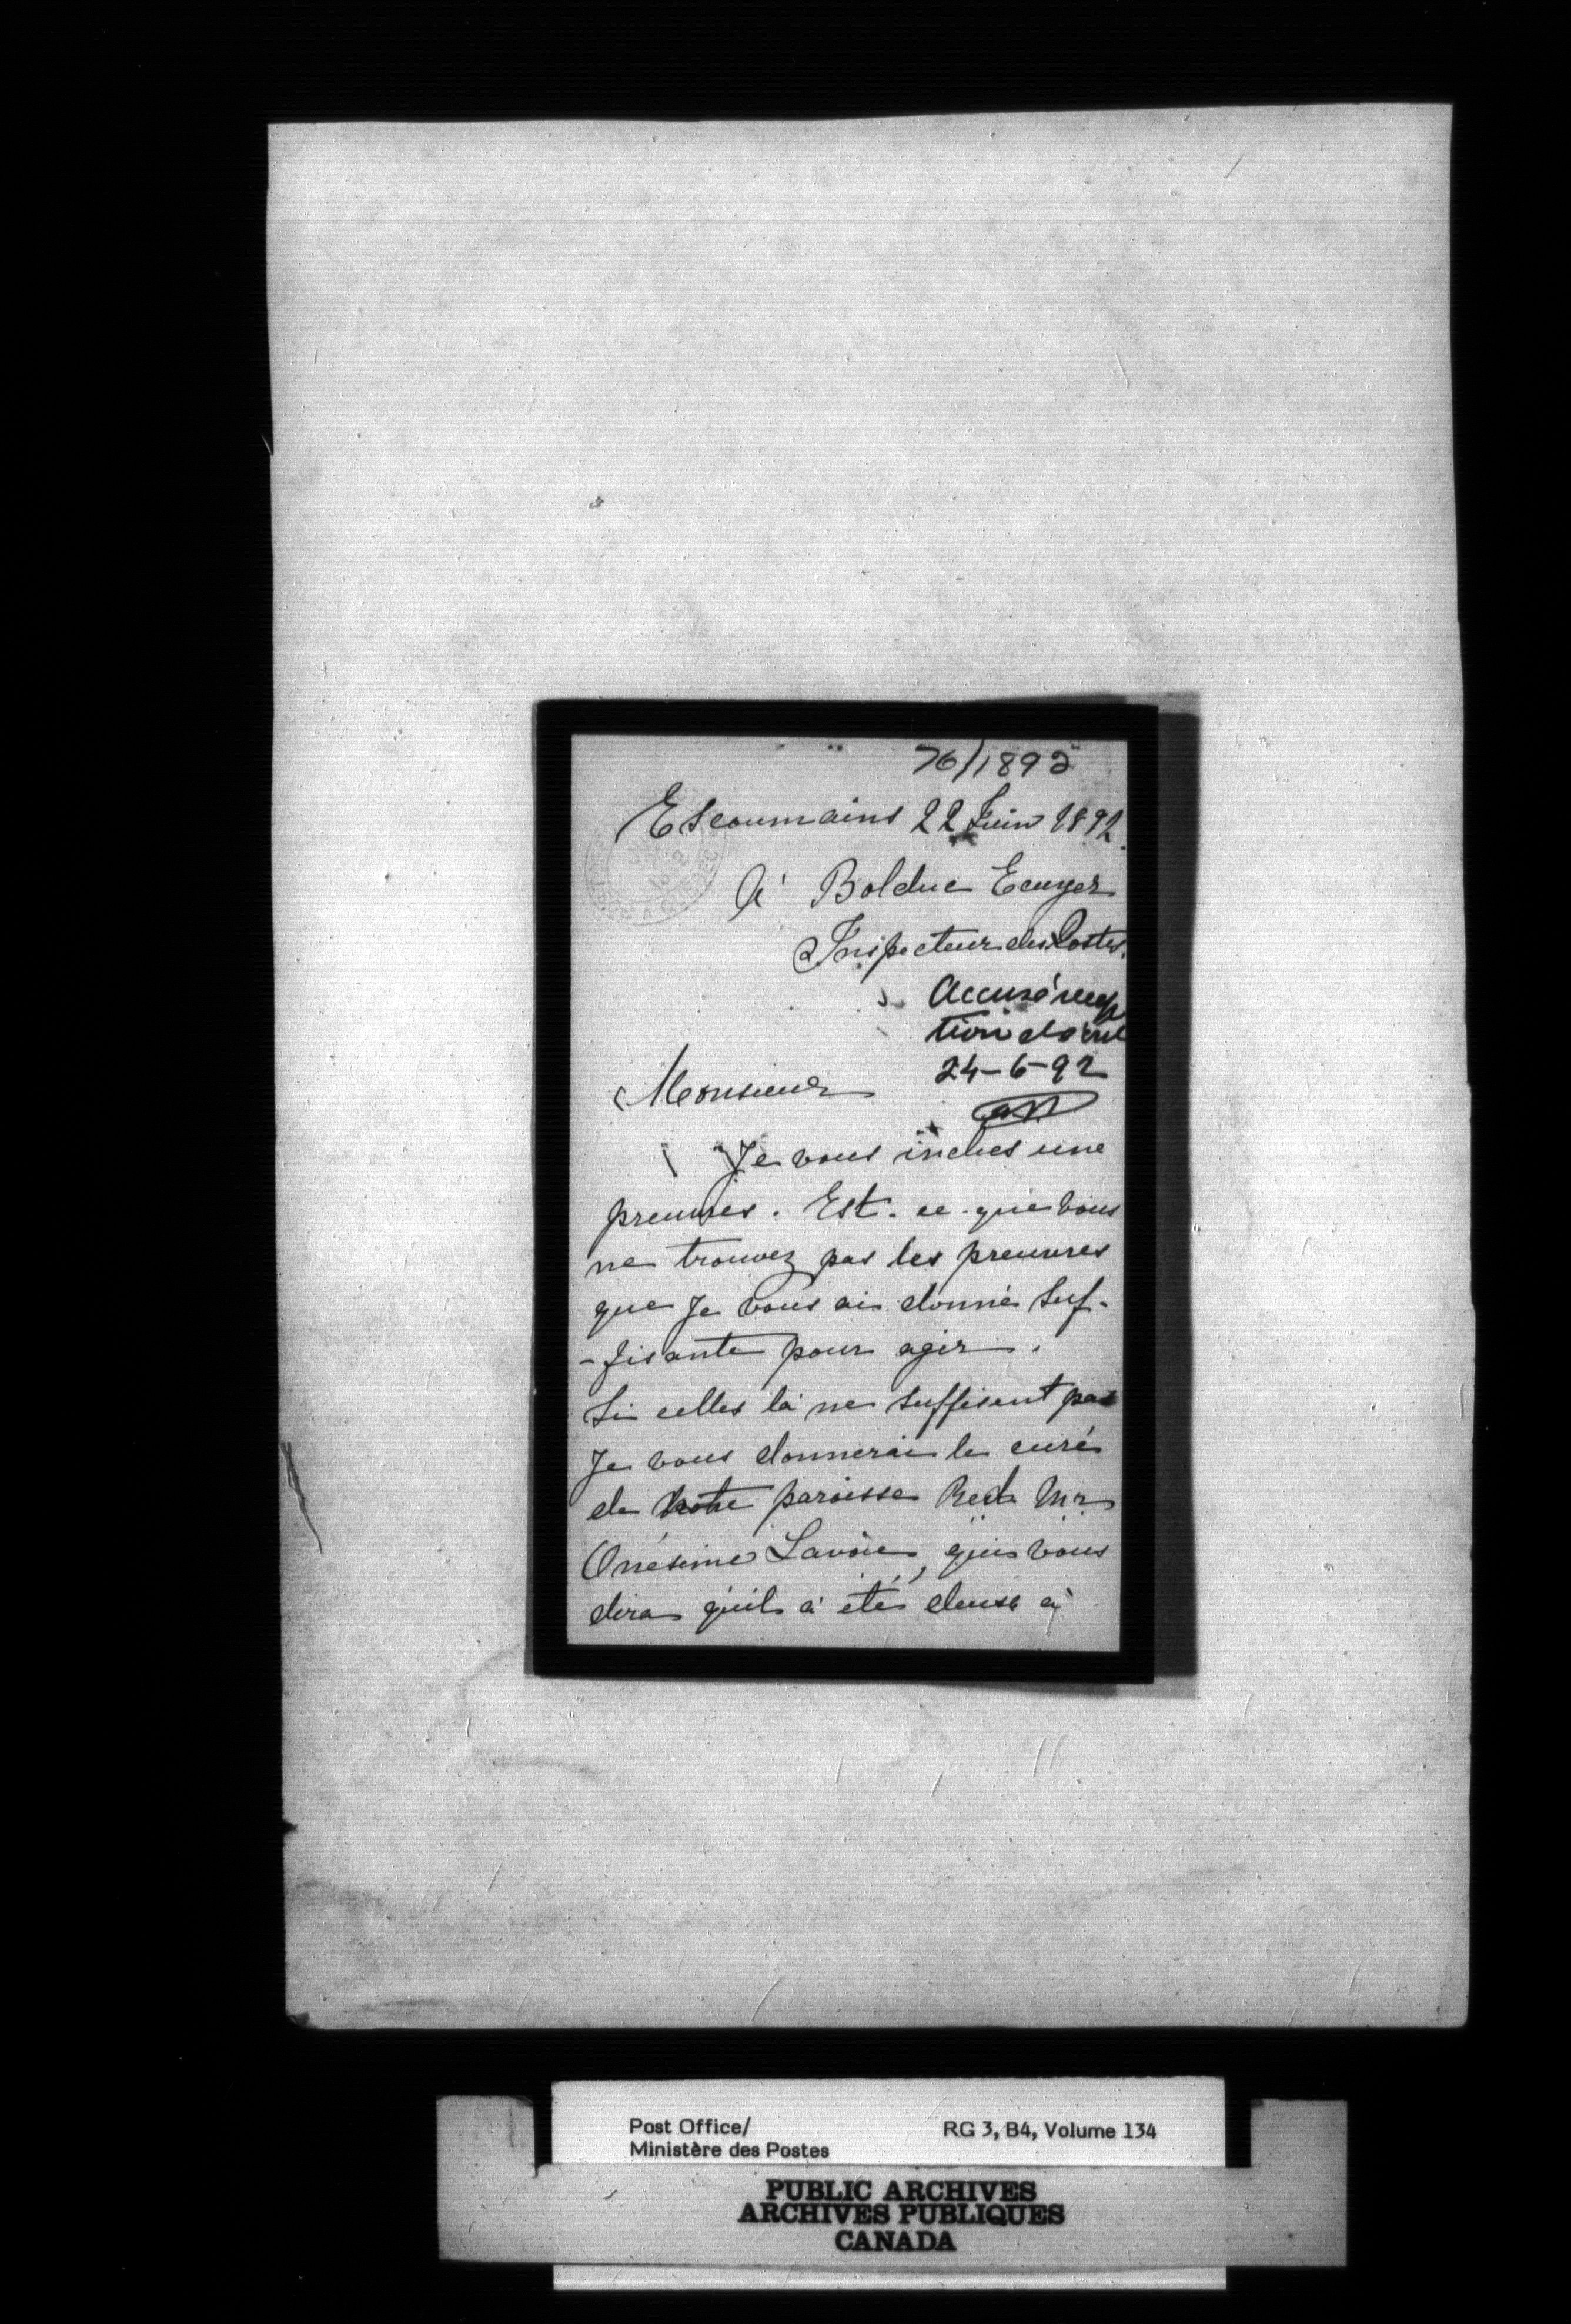 76/1892
Escoumains 22 Juin 1892.
QUEBEC
à Bolduc Ecuyer
Inspecteur des Postes.
Accusé récep
tion
24-6-92
Monsieur
Je vous inclus une
preuves. Est-ce-que vous
ne trouvez pas les preuves
que Je vous ai donné suf-
-fisante pour agir.
Si celles là ne suffisent pas
Je vous donnerai le curé
de notre paroisse Red. Mr
Onésime Lavoie, qui vous
dira qu'il à été deux à
Post Office/
Ministère des Postes
RG 3, B4, Volume 134
PUBLIC ARCHIVES
ARCHIVES PUBLIQUES
CANADA